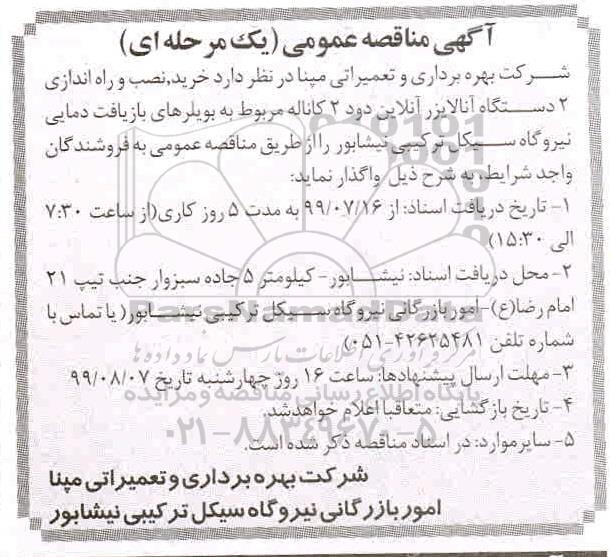 آگهی مناقصه عمومی (یک مرحله ای)
شرکت بهره برداری و تعمیراتی مپنا در نظر دارد خرید,نصب و راه اندازی
۲ دستگاه آنالایزر آنلاین دود ۲ کاناله مربوط به بویلرهای بازیافت دمایی
نیروگاه سیکل ترکیبی نیشابور را از طریق مناقصه عمومی به فروشندگان
واجد شرایط، به شرح ذیل واگذار نماید:
۱- تاریخ دریافت اسناد: از ۹۹/۰۷/۱۶ به مدت ۵ روز کاری(از ساعت ۷:۳۰
الی ۱۵:۳۰)
۲- محل دریافت اسناد: نیشابور- کیلومتر ۵ جاده سبزوار جنب تیپ ۲۱
امام رضا(ع)- امور بازرگانی نیروگاه سیکل ترکیبی نیشابور( یا تماس با
شماره تلفن ۴۲۶۲۵۴۸۱-۰۵۱)
۳- مهلت ارسال پیشنهادها: ساعت ۱۶ روز چهارشنبه تاریخ ۹۹/۰۸/۰۷
۴- تاریخ بازگشایی: متعاقبا اعلام خواهدشد.
۵- سایرموارد: در اسناد مناقصه ذکر شده است.
شرکت بهره برداری و تعمیراتی مپنا
امور بازرگانی نیروگاه سیکل ترکیبی نیشابور
ParsNamadData
مرکز فرآوری اطلاعات پارس نماد داده ها
پایگاه اطلاع رسانی مناقصه و مزایده
۰۲۱-۸۸۳۴۹۶۷۰-۵